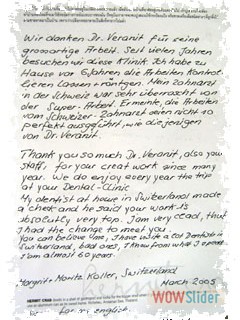 Wir danken Dr. Veranit für seine
grossartige Arbeit. Seit vielen Jahren
besuchen wir diese Klinik. Ich habe zu
Hause vor 6 Jahren die Arbeiten Kontrol-
lieren Lassen u röntgen. Mein Zahnarzt
in der Schweiz war sehr überrascht von
der Super-Arbeit. Er meinte, die Arbeiten
vom Schweizer-Zahnarzt seien nicht so
perfekt ausgeführt, wie die jenigen
von Dr. Veranit.
Thank you so much Dr. Veranit, also your
staff, for your great work since many
year. We do enjoy every year the trip
at your Dental-Clinic
My dentist at home in Switzerland made
a check and he said your work is
absolutly very top. I am very glad, that
I had the change to meet you.
You can believe me, I have with a lot Dentists in
Switzerland, bad one, I know from what I speak
I am almost 60 years.
Margrit + Moritz Koller, Switzerland
March 2005
HERMIT CRAB
english
WOWSlider